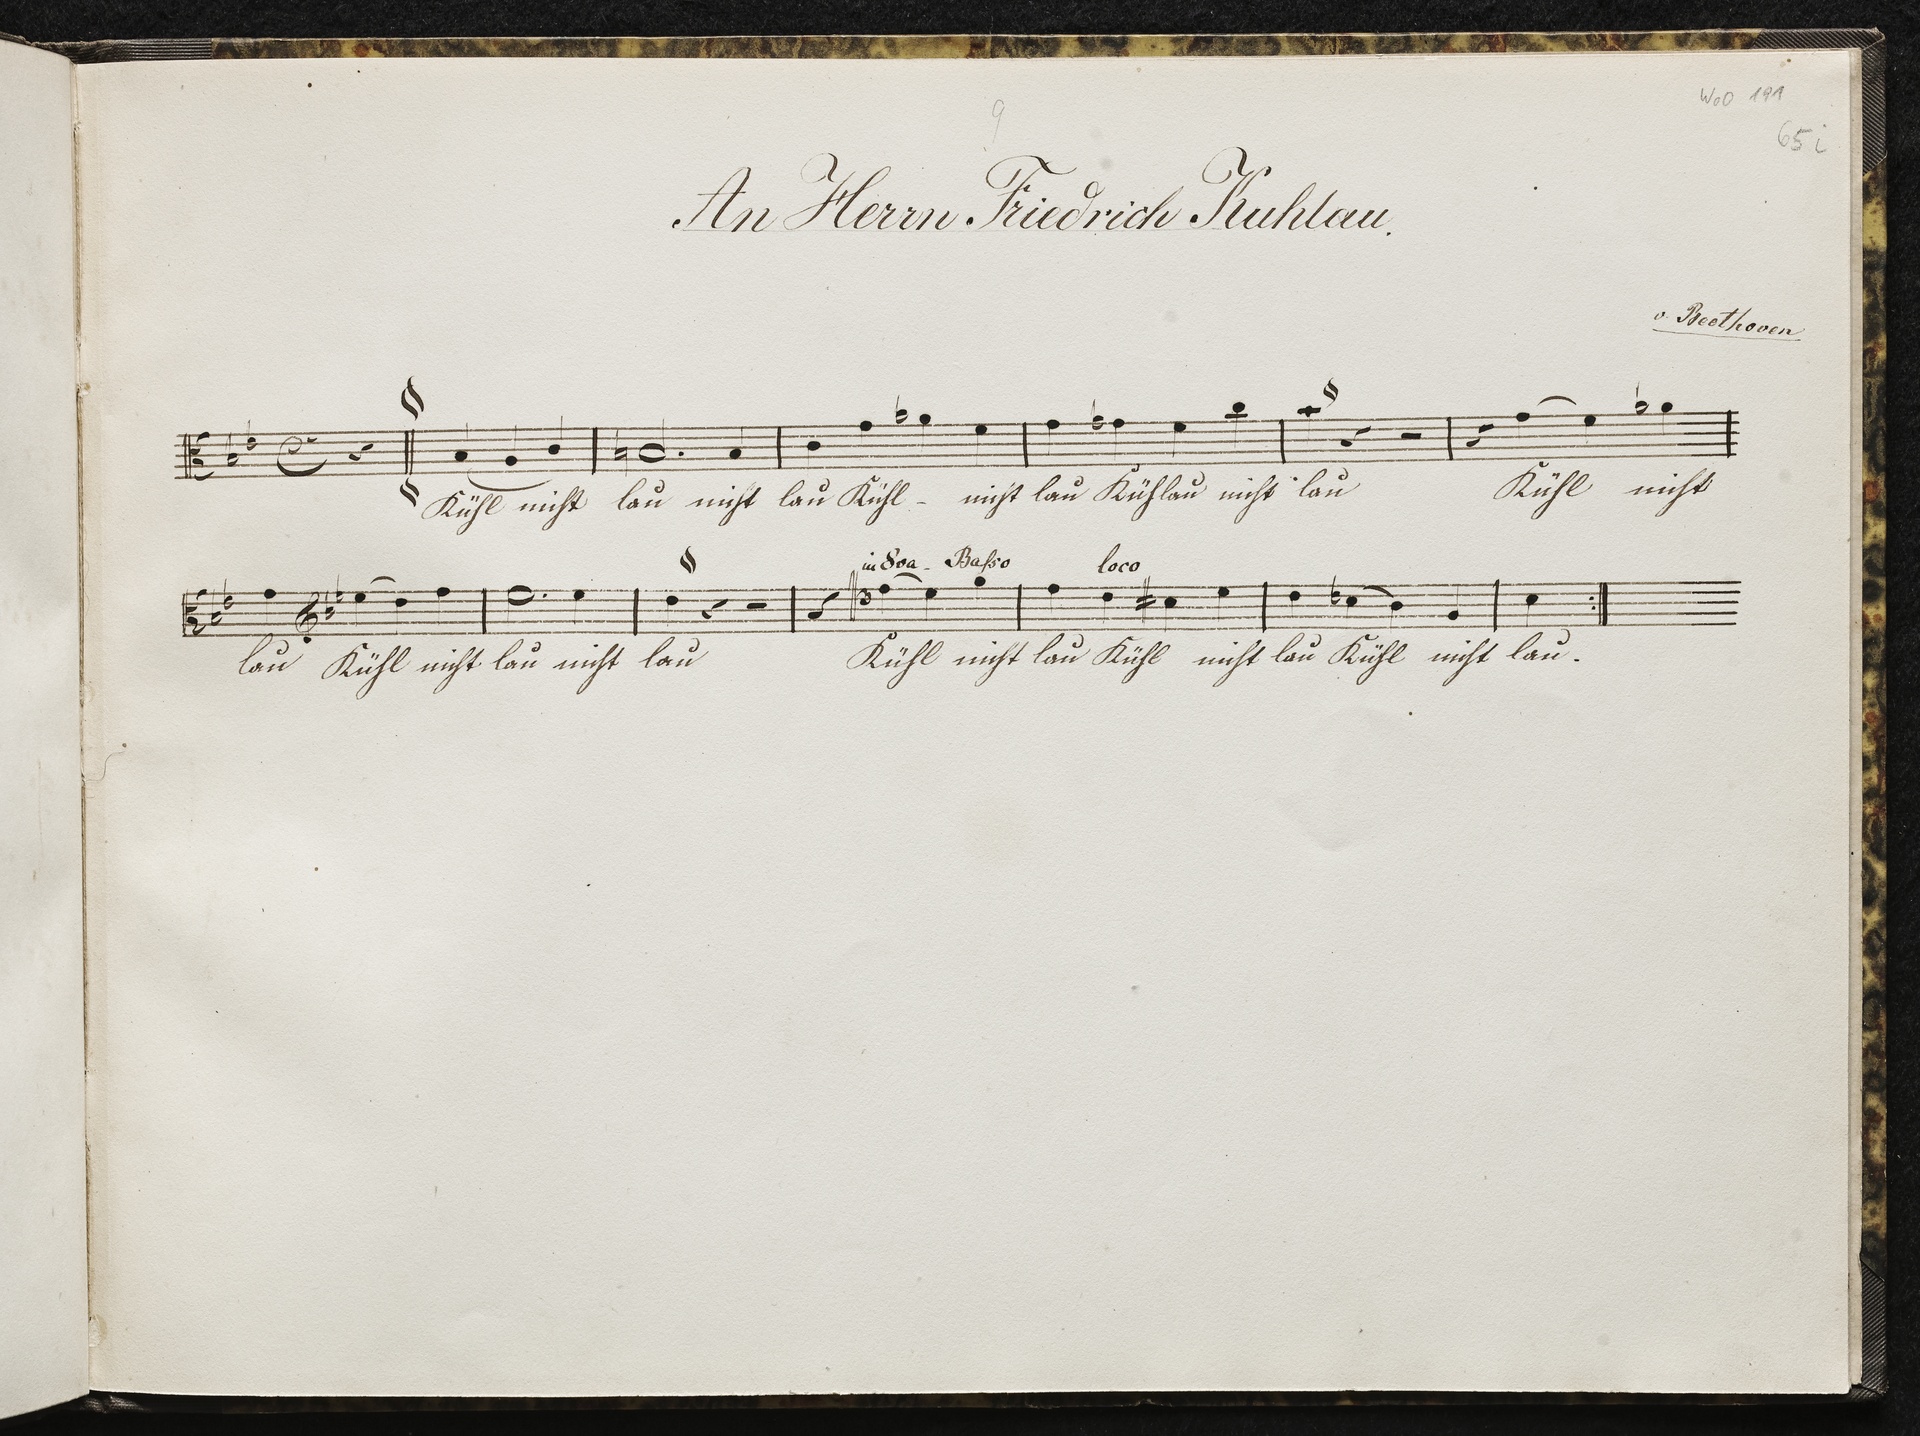 WoO 191
65i
9
An Herrn Friedrich Kuhlau.
v. Beethoven
Kühl nicht lau nicht lau Kühl - nicht lau Kühlau nicht lau Kühl nicht
in 8va - Basso loco
lau Kühl nicht lau nicht lau Kühl nicht lau Kühl nicht lau Kühl nicht lau.